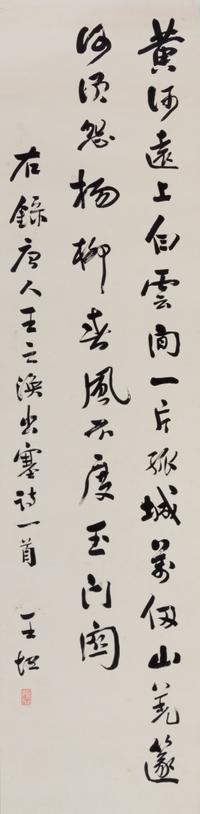 黄河遠上白雲間一片孤城萬仞山羌篴
何須怨楊柳春風不度玉门關
右錄唐人王之渙出塞詩一首 王